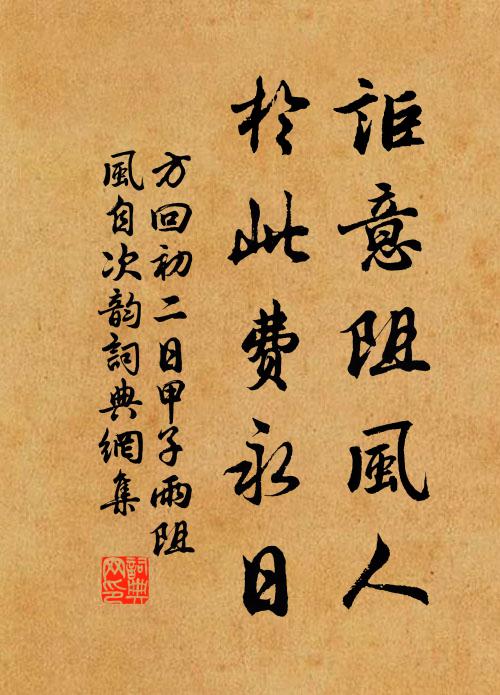 詎意阻風人
於此費永日
方回初二日甲子雨阻
風自次韵詞典網集
詞典
网印